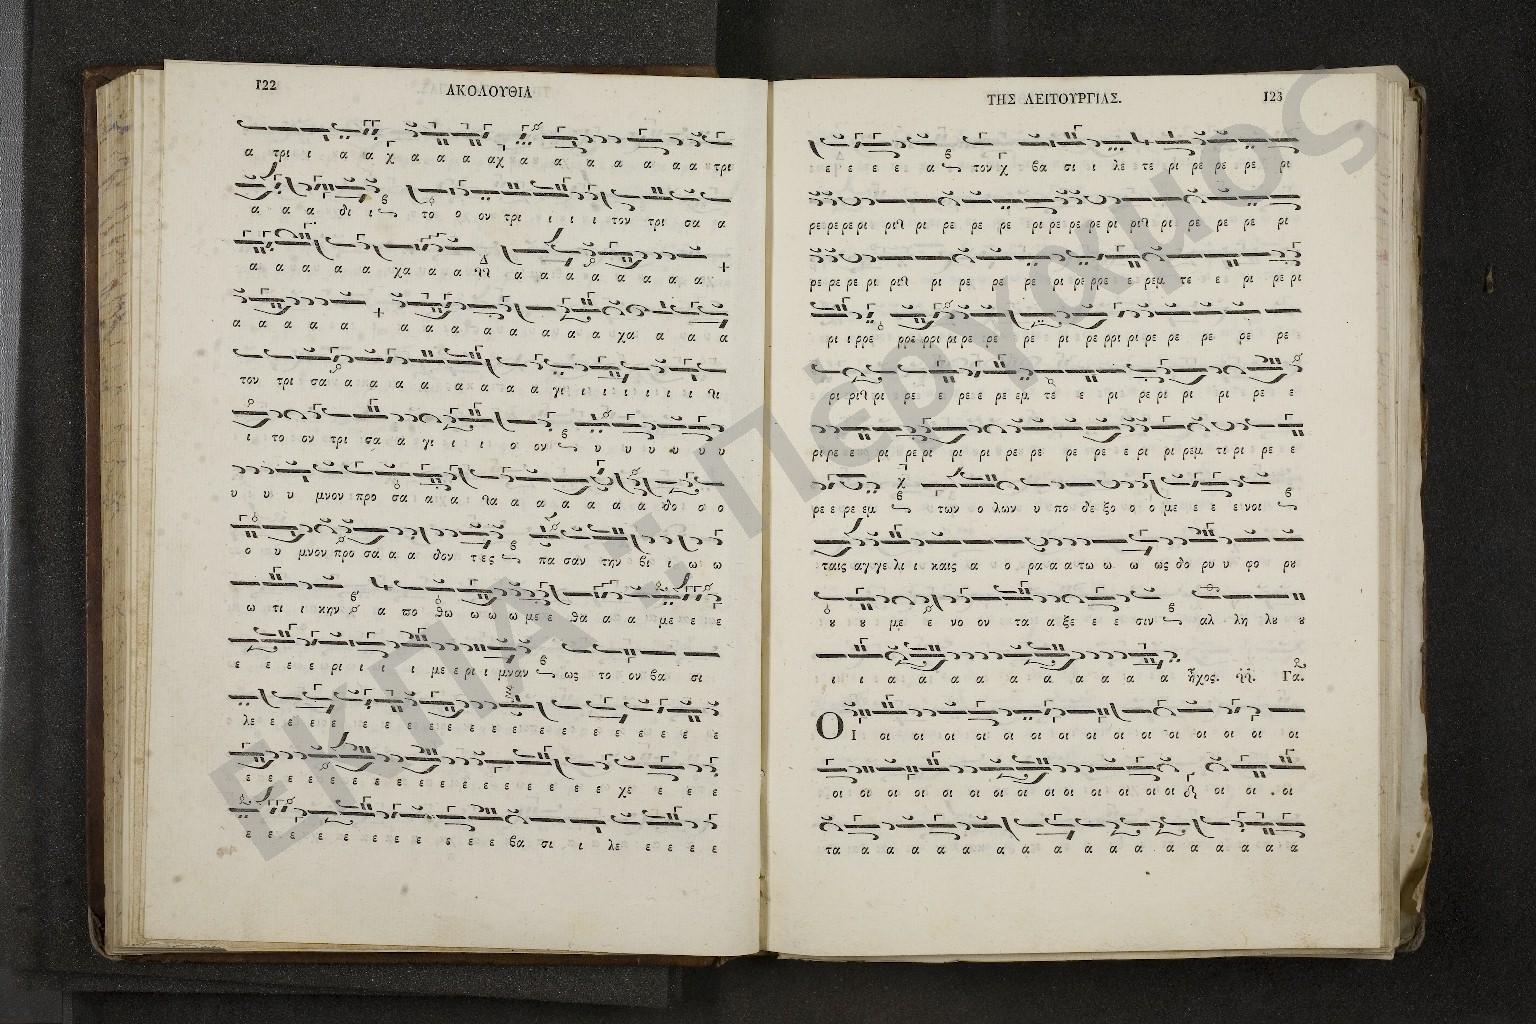 122
ΑΚΟΛΟΥΘΙΑ
α τρι ι α α χ α α α αχ α α α α α α α τρι
α α α δι ι το ο ον τρι ι ι ι τον τρι σα α
α α α α α α χα α α α α α α α α α α α
α α α α α α α α α α α α α χα α α α
τον τρι σα α α α α α α α α γι ι ι ι ι ι ι
ι το ον τρι σα α γι ι ι ο ον υ υ υ υ υ υ
υ υ υ μνον προ σα α α δα α α α α α δο ο ο
ο υ μνον προ σα α α δον τες πα σαν την βι ι ω ω
ω τι ι κην α πο θω ω ω ω με ε θα α α με ε ε
ε ε ε ε ρι ι ι ι με ε ρι ι μναν ως το ον βα σι
λε ε ε ε ε ε ε ε ε ε ε ε ε ε ε ε ε
ε ε ε ε ε ε ε ε ε ε ε ε ε ε χε ε ε ε
ε ε ε ε ε ε ε ε ε ε βα σι ι λε ε ε ε ε
ΤΗΣ ΛΕΙΤΟΥΡΓΙΑΣ.
123
ε ε ε ε α τον χ βα σι ι λε τε ρι ρε ρε ρε ρι
ρε ρε ρε ρι ρι ρι ρε ρε ρε ρι ρε ρε ρε ρι ρι ρι ρε ρε ρε ρι
ρε ρε ρε ρι ρι ρι ρε ρε ρε ρι ρε ρρε ε ρεμ τε ε ρι ρε ρι
ρι ι ρρε ρρε ρρι ρι ρε ρε ρε ρι ρε ρρι ρι ρε ρε ρε ρε ρε
ρι ρι ρι ρε ε ρε ε ρε εμ τε ε ρι ρε ρι ρι ρι ρε ε
ρι ρε ε ρι ρε ρι ρι ρι ρε ρε ρε ρε ε ρι ρι ρεμ τι ρι ρε ε
ρε ε ρε εμ των ο λων υ πο δε ξο ο ο με ε ε ε νοι
ταις αγ γε λι ι καις α ο ρα α α τω ω ω ως δο ρυ υ φο ρυ
υ υ με ε νο ον τα α ξε ε ε σιν αλ λη λυ υ
ι ι α α α α α α α α α α ἦχος. Γα.
ΟΙ οι οι οι οι οι οι οι οι οι οι οι οι οι οι οι
οι οι οι οι οι οι οι οι οι οι οι οι οι οι οι οι οι
τα α α α α α α α α α α α α α α α α